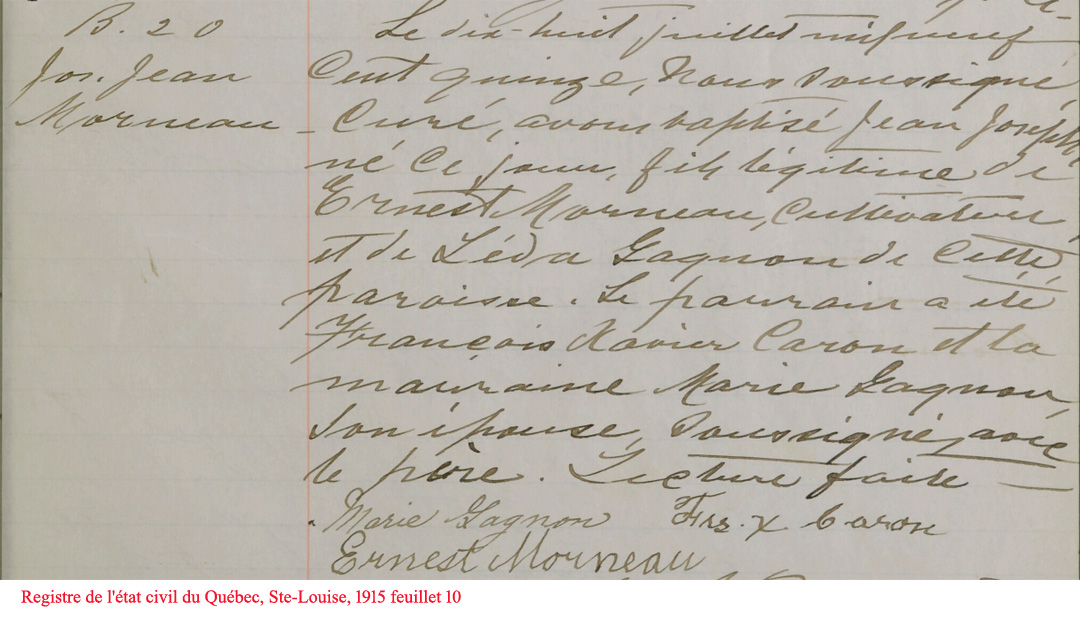 B. 20
Jos. Jean
Morneau
Le dix-huit juillet mil neuf
Cent quinze, Nous soussigné,
Curé, avons baptisé Jean Joseph
né Ce jour, fils légitime de
Ernest Morneau, Cultivateur,
et de Léda Gagnon de Cette
paroisse. Le parrain a été
François Xavier Caron et la
marraine Marie Gagnon,
Son épouse, soussignés avec
le père. Lecture faite
Marie Gagnon Frs. X Caron
Ernest Morneau
Registre de l'état civil du Québec, Ste-Louise, 1915 feuillet 10